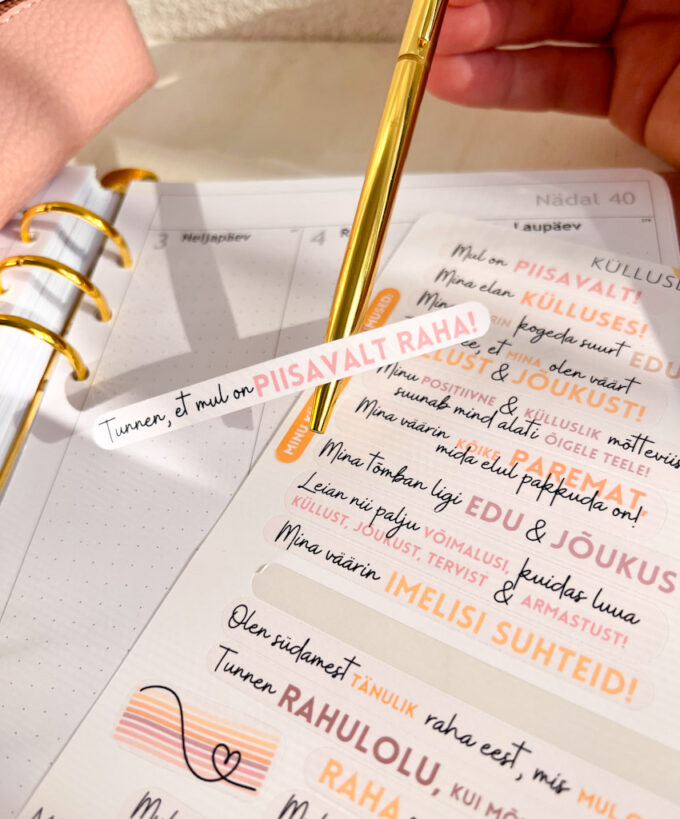 Nädal 40
3 Neljapäev
4
Laupäev
KÜLLUS
Mul on PIISAVALT!
Mina elan KÜLLUSES!
kogeda suurt EDU
et MINA olen väärt
& JÕUKUST!
Minu POSITIIVNE & KÜLLUSLIK mõtteviis
suunab mind alati ÕIGELE TEELE!
Mina väärin KÕIKE PAREMAT,
mida elul pakkuda on!
Mina tõmban ligi EDU & JÕUKUS
Leian nii palju VÕIMALUSI, kuidas luua
KÜLLUST, JÕUKUST, TERVIST & ARMASTUST!
Mina väärin IMELISI SUHTEID!
Tunnen, et mul on PIISAVALT RAHA!
Olen südamest TÄNULIK raha eest, mis MUL
Tunnen RAHULOLU, KUI
RAHA